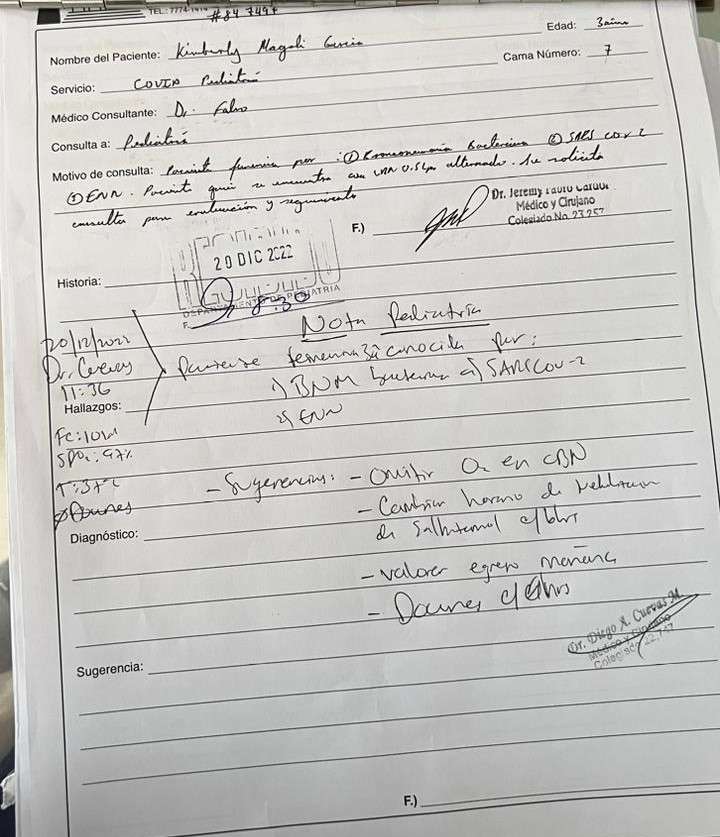 TEL.: 7774-1414
#84 7497
Edad: 3 años
Nombre del Paciente: Kimberly Magali Garcia
Cama Número: 7
Servicio: COVID Pediatría
Médico Consultante: Dr. Fabro
Consulta a: Pediatría
Motivo de consulta: Paciente femenina por: ① Bronconeumonia Bacteriana ② SARS COV 2
③ ENN. Paciente quien se encuentra con 0.5 lpm alternado. Se solicita
consulta para evaluación y seguimiento
F.)
Dr. Jeremy
Médico y Cirujano
Colegiado No. 23,257
20 DIC 2022
DEPARTAMENTO DE PEDIATRIA
8:30
F.
Historia:
Nota Pediatría
20/12/2022
Dr. Cuevas
Paciente femenina 3a conocida por:
11:36
1) BNM bacteriana a) SARSCOV-2
Hallazgos:
2) ENN
Fc:
SPO2: 97%
- Sugerencias: - Omitir O2 en CBN
T: 37°C
- Cambiar horario de nebulizacion
de Salbutamol c/6hrs
Diagnóstico:
- valorar egreso mañana
-
Dr. Diego A. Cuevas M.
Médico y Cirujano
Colegiado 22,747
Sugerencia:
F.)